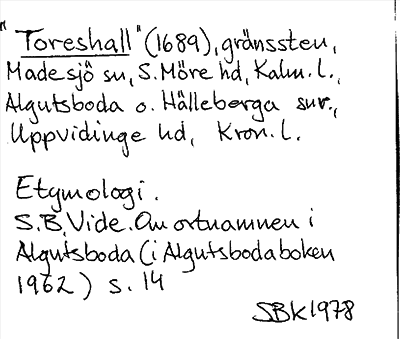 "Toreshall" (1689), gränssten,
Madesjö sn, S. Möre hd, Kalm. l.,
Algutsboda o. Hälleberga snr.,
Uppvidinge hd, Kron. l.
Etymologi.
S.B. Vide. Om ortnamnen i
Algutsboda (i Algutsbodaboken
1962) s. 14
SBK 1978